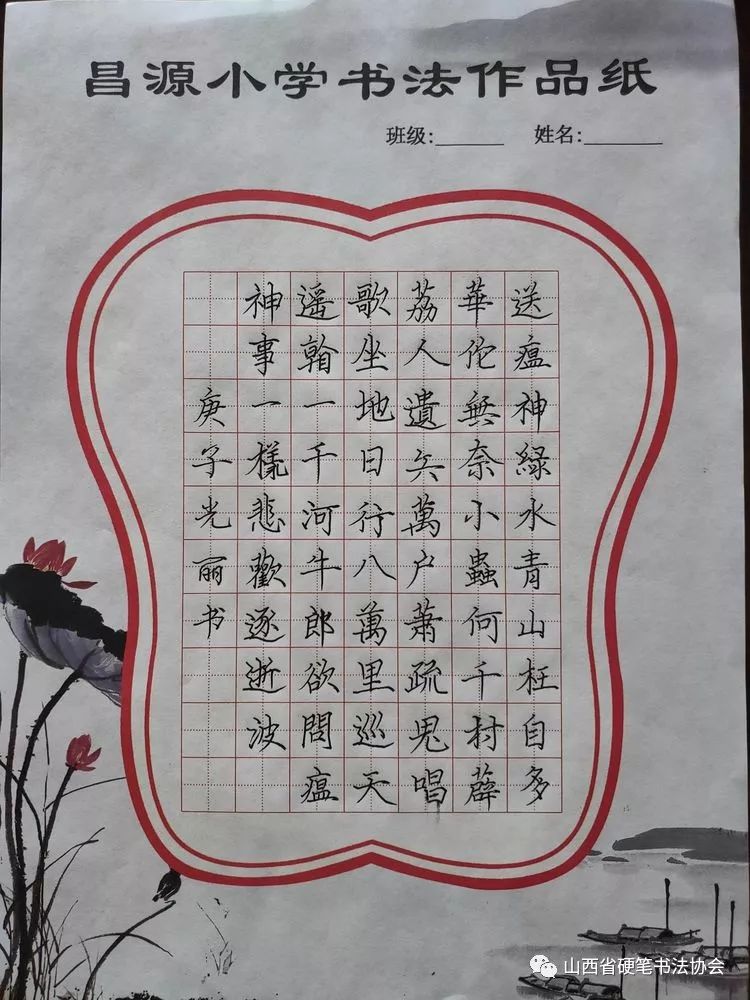 昌源小学书法作品纸
班级:______ 姓名:______
送瘟神綠水青山枉自多
華佗無奈小蟲何千村薜
荔人遺矢萬户蕭疏鬼唱
歌坐地日行八萬里巡天
遥看一千河牛郎欲問瘟
神事一樣悲歡逐逝波
庚子光丽书
山西省硬笔书法协会